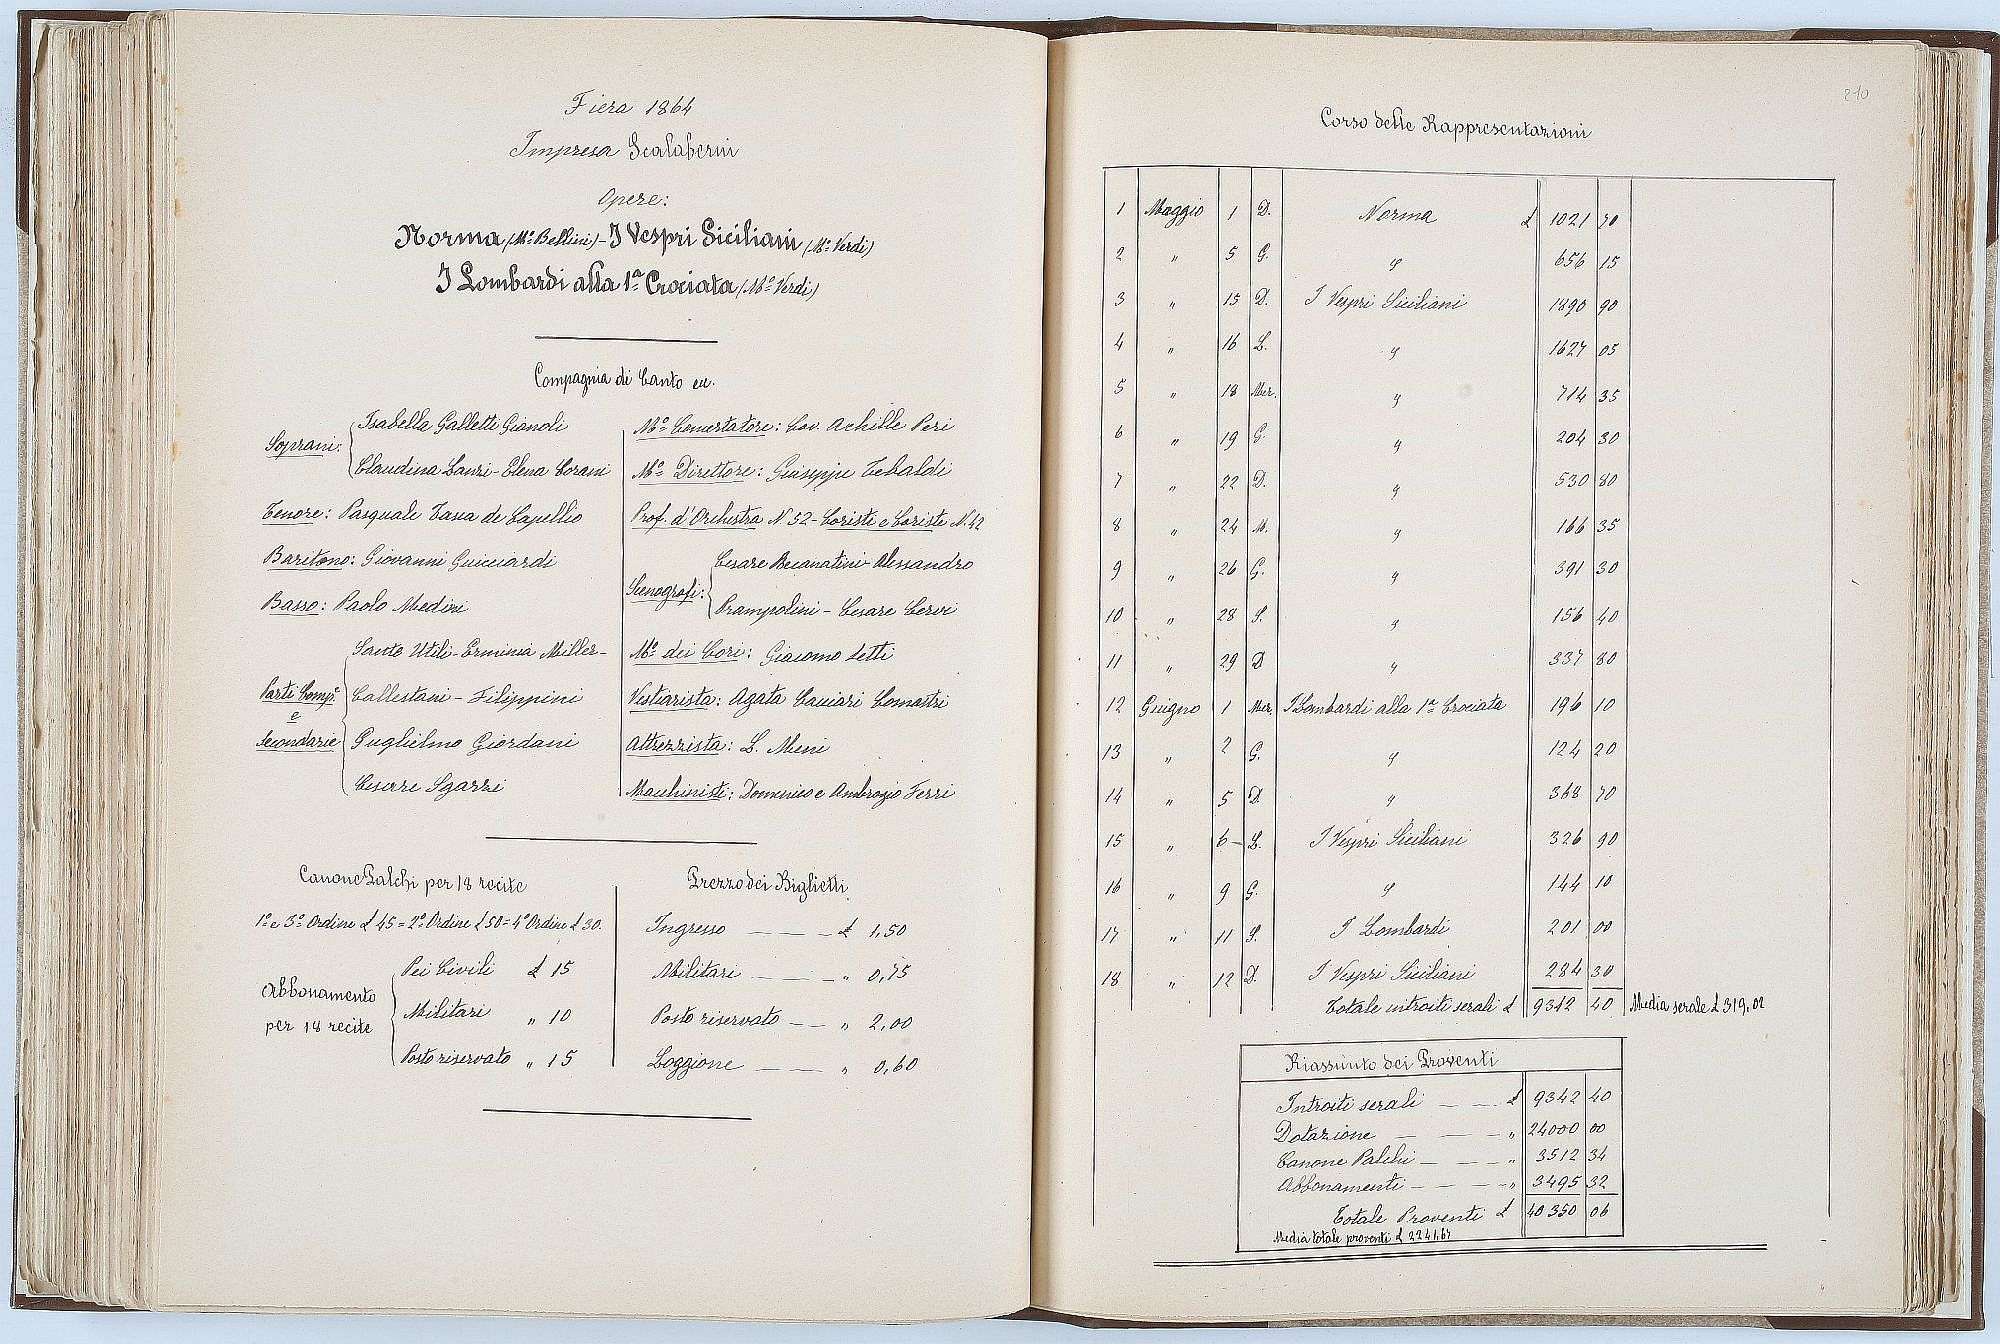 Fiera 1864
Impresa Scalaberni
Opere:
Norma (Mº Bellini) - I Vespri Siciliani (Mº Verdi)
I Lombardi alla 1ª Crociata (Mº Verdi)
Compagnia di Canto ec.
Soprani: Isabella Galletti Gianoli
Claudina Lanzi - Elena Corani
Tenore: Pasquale Tasca de Capellio
Baritono: Giovanni Guicciardi
Basso: Paolo Medini
Parti Comp.e e Secondarie
Sante Utili - Erminia Miller -
Callestani - Filippini
Guglielmo Giordani
Cesare Sgarzi
Mº Concertatore: Cav. Achille Peri
Mº Direttore: Giuseppe Tebaldi
Prof. d'Orchestra N. 52 - Coristi e Coriste N. 42
Scenografi: Cesare Recanatini - Alessandro
Prampolini - Cesare Cervi
Mº dei Cori: Giacomo Setti
Vestiarista: Agata Cacciari Comastri
Attrezzista: L. Meni
Macchinisti: Domenico e Ambrogio Ferri
Canone Palchi per 18 recite
1º e 3º Ordine £ 45 = 2º Ordine £ 50 = 4º Ordine £ 30.
Abbonamento per 18 recite
Pei Civili £ 15
Militari " 10
Posto riservato " 15
Prezzo dei Biglietti
Ingresso — — — £ 1,50
Militari — — — " 0,75
Posto riservato — — " 2,00
Loggione — — " 0,60
210
Corso delle Rappresentazioni
1 Maggio 1 D. Norma £ 1021 70
2 " 5 G. " 656 15
3 " 15 D. I Vespri Siciliani 1890 90
4 " 16 L. " 1627 05
5 " 18 Mer. " 714 35
6 " 19 G. " 204 30
7 " 22 D. " 530 80
8 " 24 M. " 166 35
9 " 26 G. " 391 30
10 " 28 S. " 156 40
11 " 29 D " 337 80
12 Giugno 1 Mer. I Lombardi alla 1ª Crociata 196 10
13 " 2 G. " 124 20
14 " 5 D. " 368 70
15 " 6 - L. I Vespri Siciliani 326 90
16 " 9 G. " 144 10
17 " 11 S. I Lombardi 201 00
18 " 12 D. I Vespri Siciliani 284 30
Totale introiti serali £ 9342 40 Media serale £ 519,02
Riassunto dei Proventi
Introiti serali — — £ 9342 40
Dotazione — — — " 24000 00
Canone Palchi — — — " 3512 34
Abbonamenti — — — " 3495 32
Totale Proventi £ 40350 06
Media totale proventi £ 2241,67